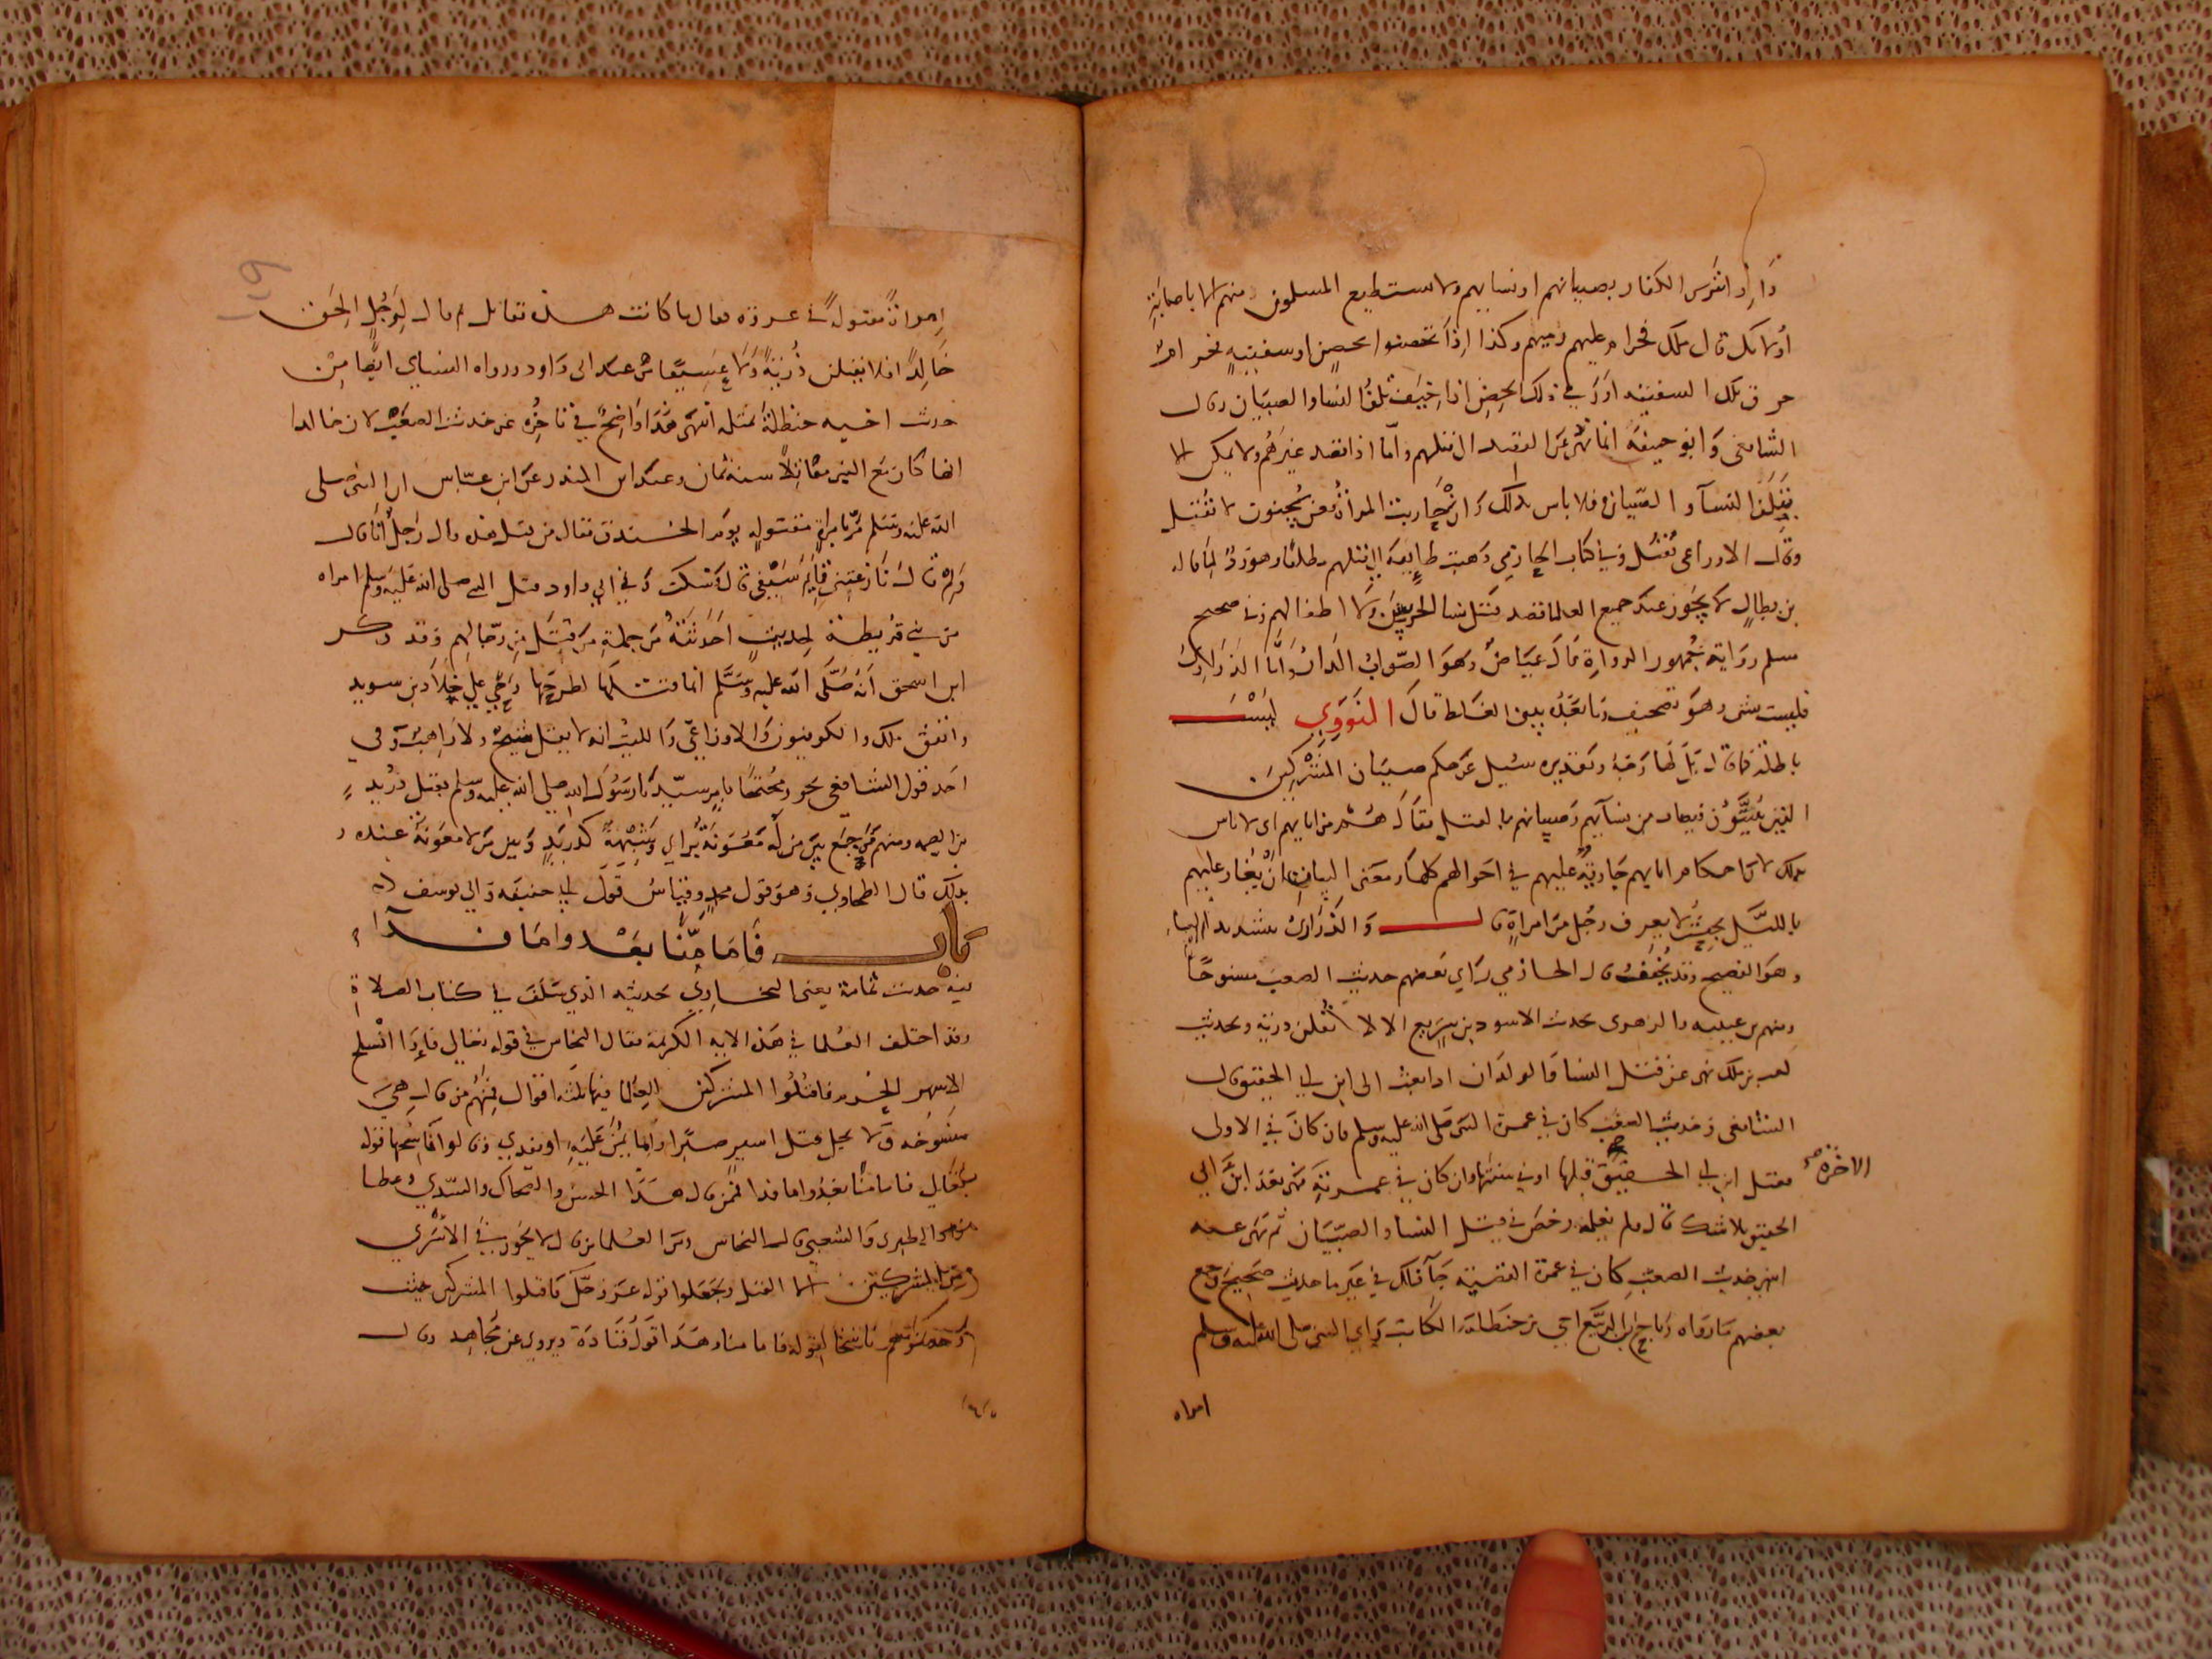 واذا تترس الكفار بصبيانهم او نسايهم ولا يستطيع المسلمون منهم الا باصابة
اولايك قال ملك فحرام عليهم رميهم وكذا اذا تحصنوا بحصن او سفينة نحرام
حرق تلك السفينة او رمي ذلك الحصن اذا خيف تلف النسا والصبيان وقال
الشافعي وابو حنيفة انما نهي عن القصد الى قتلهم واما اذا قصد غيرهم ولا يمكن الا
بتلف النسآ والصبيان فلا باس بذلك وان حاربت المراة فعن سحنون لا تقتل
وقال الاوزاعي تقتل وفي كتاب الحازمي وهبت طايفة الى قتلهم مطلقا وهو ردي لما قاله
بن بطال لا يجوز عند جميع العلما قصد قتل نسا الحربيين ولا اطفالهم وفي صحيح
مسلم رواية جمهور الرواة قال عياض وهو الصواب الدار واما الذراري
فليست بشي وهو تصحيف وما بعده يبين الغلط قال النووي ليست
باطلة كما قال بل لها وجه وتقديره سئل عن حكم صبيان المشركين
الذين يبيتون فيصاب من نسآيهم وصبيانهم بالقتل فقال هم من ابايهم اي لا باس
بذلك لان احكام ابايهم جارية عليهم في احوالهم كلها ومعنى البيات ان يغار عليهم
بالليل بحيث لا يعرف رجل من امراة قال والذراري بتشديد اليآء
وهو الفصيح وقد يخفف قال الحازمي راي بعضهم حديث الصعب منسوخا
ومنهم بن عيينة والزهري بحديث الاسود بن سريع الا لا تقتلن ذرية وبحديث
كعب بن ملك نهى عن قتل النسا والولدان اذ بعث الى ابن ابي الحقيق قال
الشافعي وحديث الصعب كان في عمرة النبي صلى الله عليه وسلم فان كان في الاولى
فقتل ابن ابي الحقيق قبلها او في سنتها وان كان في عمرته فهي بعد ابن ابي
الاخرة صح
الحقيق بلا شك قال ولم نعلمه رخص في قتل النسا والصبيان ثم نهى عنه
انتهى حديث الصعب كان في عمرة القضية جآ ذلك في غير ما حديث صحيح وجمع
بعضهم ما رواه رباح بن الربيع اخي بن حنظلة الكاتب راي النبي صلى الله عليه وسلم
امراه
امراة مقتولة في غزوة فقال ما كانت هذه تقاتل ثم قال لرجل الحق
خالدا فلا يقتلن ذرية ولا عسيفا من عند ابي داود ورواه النساي ايضا من
حديث اخيه حنظلة بمثله انتهى هذا واضح في تاخره عن حديث الصعب لان خالدا
انما كان مع النبي مقاتلا سنة ثمان وعند ابن المنذر عن ابن عباس ان النبي صلى
الله عليه وسلم مر بامراة مقتولة يوم الخندق فقال من قتل هذه قال رجل انا قال
ولم قال نازعتني قايم سيفي قال فسكت وفي ابي داود قتل النبي صلى الله عليه وسلم امراه
من بني قريظة لحديث احدثته من جملة من قتل من رجالهم وقد ذكر
ابن اسحق انه صلى الله عليه وسلم انما قتلها لطرحها رحى على خلاد بن سويد
واتفق ملك والكوفيون والاوزاعي والليث انه لا يقتل شيخ ولا راهب وفي
احد قول الشافعي نحو محتجا بامر سيدنا رسول الله صلى الله عليه وسلم بقتل دريد
بن الصمة ومنهم من جمع بين من له معونة براي وشبهه كدريد وبين من لا معونة عنده
بذلك قال الطحاوي وهو قول محمد وقياس قول ابي حنيفة وابي يوسف
باب فاما منا بعد واما فدآ
فيه حديث ثمامة يعني البخاري بحديثه الذي سلف في كتاب الصلاة
وقد اختلف العلما في هذه الاية الكريمة فقال النحاس في قوله تعالى فاذا انسلخ
الاشهر الحرم فاقتلوا المشركين للعلما فيها ثلثة اقوال فمنهم من قال هي
منسوخة ولا يحل قتل اسير صبرا وانما يمن عليه او يفدي وقالوا ناسخها قوله
تعالى فاما منا بعد واما فدا فمن قال هذا الحسن والضحاك والسدي وعطا
الطبري والشعبي قال النحاس ومن العلما من قال لا يجوز في الاسرى
من المشركين الا القتل وجعلوا قوله عز وجل فاقتلوا المشركين حيث
وجدتموهم ناسخا لقوله فاما منا وهذا قول قتادة ويروى عن مجاهد وقال